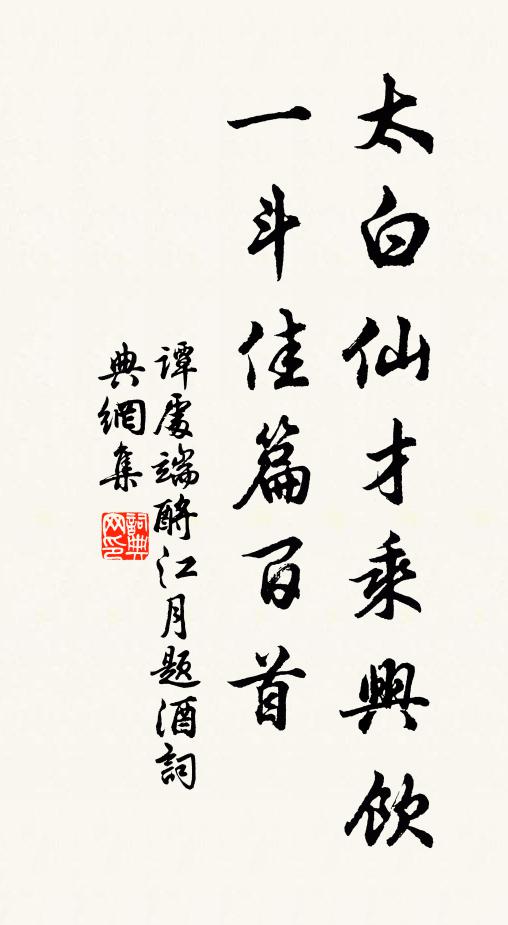 太白仙才乘興飲
一斗佳篇百首
谭處端酹江月题酒詞
典網集
詞典
网印